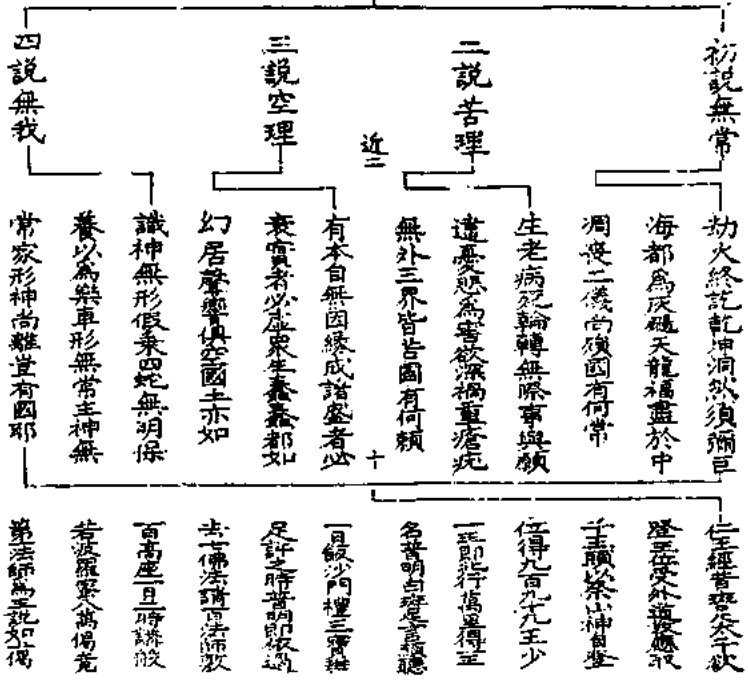 初說無常
二說苦理
近二
三說空理
四說無我
劫火終訖乾坤洞然須彌巨
海都為灰颺天龍福盡於中
凋喪二儀尚殞國有何常
生老病死輪轉無際事與願
違憂悲為害欲深禍重瘡疣
無外三界皆苦國有何賴
有本自無因緣成諸盛者必
衰實者必虛眾生蠢蠢都如
幻居聲響俱空國土亦如
識神無形假乘四蛇無明保
養以為樂車形無常主神無
常家形神尚離豈有國耶
十
仁王經昔斑足太子欲
登王位受外道教應取
千王頭以祭山神自登
位得九百九十九王少
一王即北行萬里得王
名普明白斑足言願聽
一日飯沙門禮三寶斑
足許之時普明即依過
去七佛法請百法師敷
百高座一日二時講般
若波羅蜜八萬偈竟
第一法師為王說如此偈